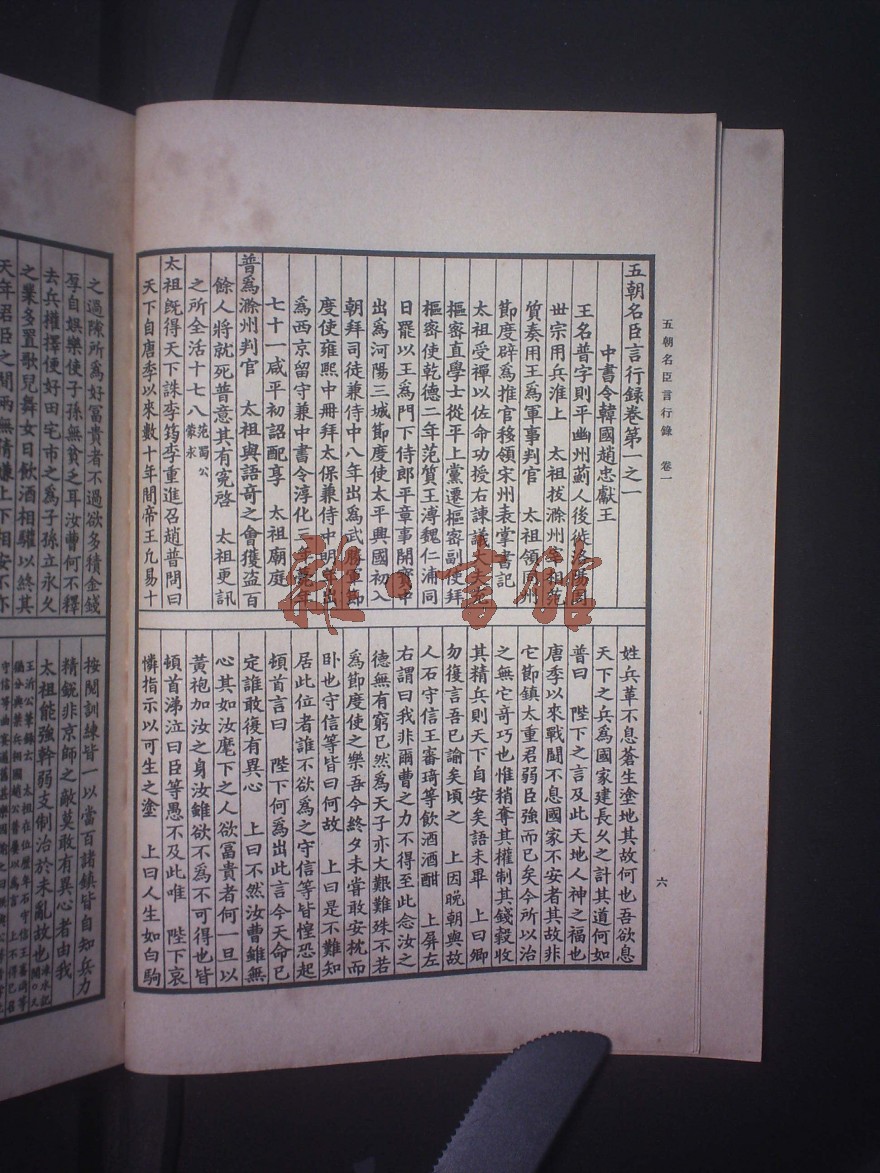 五朝名臣言行錄 卷一
六
五朝名臣言行錄卷第一之一
中書令韓國趙忠獻王
王名普字則平幽州薊人後徙洛陽周
世宗用兵淮上 太祖拔滁州宰相范
質奏用王爲軍事判官 太祖領同州
節度辟爲推官移領宋州表掌書記
太祖受禪以佐命功授右諫議大夫充
樞密直學士從平上黨遷樞密副使拜
樞密使乾德二年范質王溥魏仁浦同
日罷以王爲門下侍郎平章事開寶中
出爲河陽三城節度使太平興國初入
朝拜司徒兼侍中八年出爲武勝軍節
度使雍熙中冊拜太保兼侍中明年出
爲西京留守兼中書令淳化三年薨年
七十一咸平初詔配享 太祖廟庭
普爲滁州判官 太祖與語奇之會獲盜百
餘人將就死普意其有寃啓 太祖更訊
之所全活十七八范蜀公蒙求
太祖旣得天下誅李筠李重進召趙普問曰
天下自唐季以來數十年間帝王凡易十
姓兵革不息蒼生塗地其故何也吾欲息
天下之兵爲國家建長久之計其道何如
普曰 陛下之言及此天地人神之福也
唐季以來戰鬪不息國家不安者其故非
它節鎮太重君弱臣強而已矣今所以治
之無它奇巧也惟稍奪其權制其錢穀收
其精兵則天下自安矣語未畢 上曰卿
勿復言吾已諭矣頃之 上因晚朝與故
人石守信王審琦等飲酒酒酣 上屏左
右謂曰我非爾曹之力不得至此念汝之
德無有窮已然爲天子亦大艱難殊不若
爲節度使之樂吾今終夕未嘗敢安枕而
卧也守信等皆曰何故 上曰是不難知
居此位者誰不欲爲之守信等皆惶恐起
頓首言曰 陛下何爲出此言今天命已
定誰敢復有異心 上曰不然汝曹雖無
心其如汝麾下之人欲冨貴者何一旦以
黃袍加汝之身汝雖欲不爲不可得也皆
頓首涕泣曰臣等愚不及此唯 陛下哀
憐指示以可生之塗 上曰人生如白駒
之過隙所爲好冨貴者不過欲多積金錢
厚自娛樂使子孫無貧乏耳汝曹何不釋
去兵權擇便好田宅市之爲子孫立永久
之業多置歌兒舞女日飲酒相驩以終其
天年君臣之間兩無猜嫌上下相安不亦
按閱訓練皆一以當百諸鎮皆自知兵力
精銳非京師之敵莫敢有異心者由我
太祖能強幹弱支制治於未亂故也
雜·書館